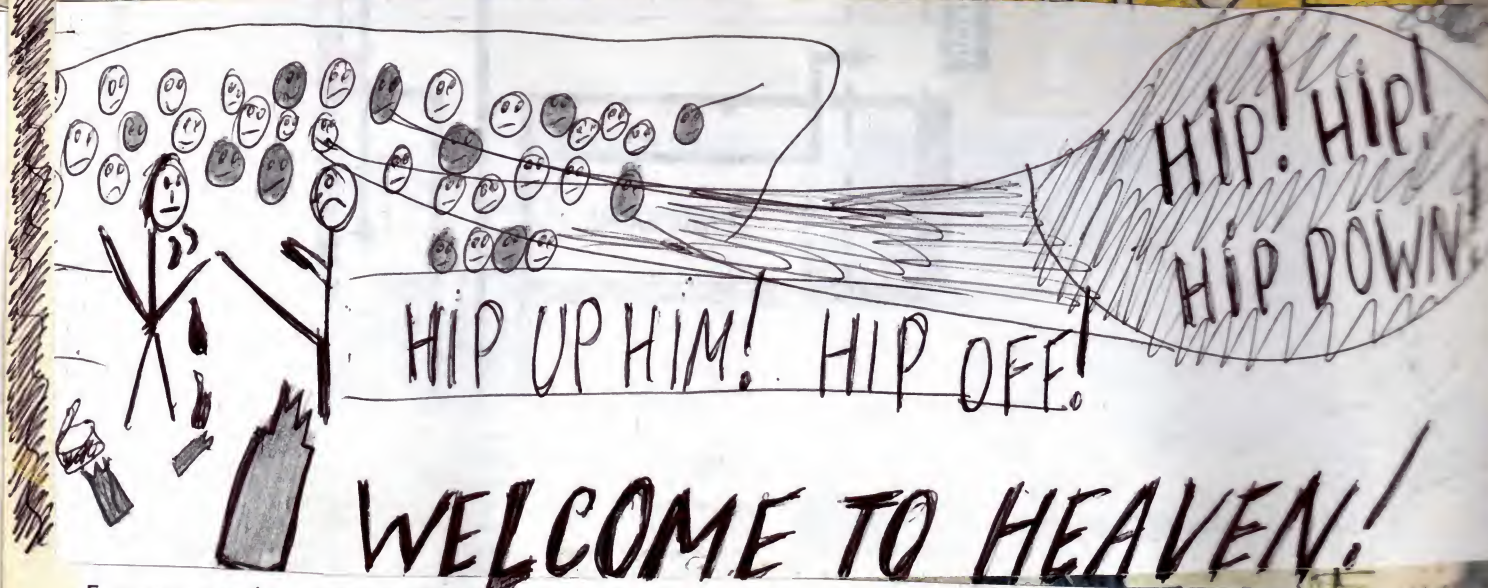 HIP! HIP!
HIP DOWN!
HIP UP HIM! HIP OFF!
WELCOME TO HEAVEN!